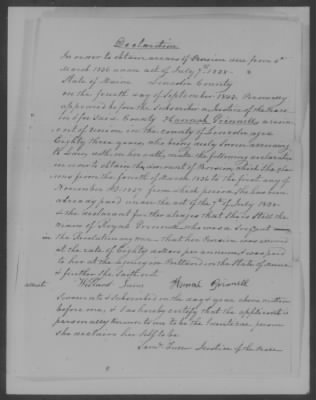 Declaration
In order to obtain arears of Pension due from 4th
March 1836 under act of July 7th 1838
State of Maine Lincoln County
on the fourth day of September 1843. Personally
appeared before the Subscriber a Justice of the Peace
in & for said County Hannah Grinnell a resi-
dent of Union in the county of Lincoln aged
Eighty three years, who being duly sworn according
to Law, doth on her oath, make the following declaration
in order to obtain the amount of Pension which
from the fourth of March 1836 to the first day of
November AD 1837 from which period she has been
already paid under the act of the 7th of July 1838
the declarant further alleges that She is Still the
Widow of Royal Grinnell who was a Sergeant
in the Revolutionary war - that her Pension was
at the rate of Eighty dollars per annum & was paid
to her at the agency in Portland in the State of Maine
& further She Saith not
attest Hannah Grinnell
Sworn to & Subscribed on the day & year above written
before me, & I do hereby certify that the applicant is
personally known to me to be the identical person
she declares her Self to be
Justice of the Peace